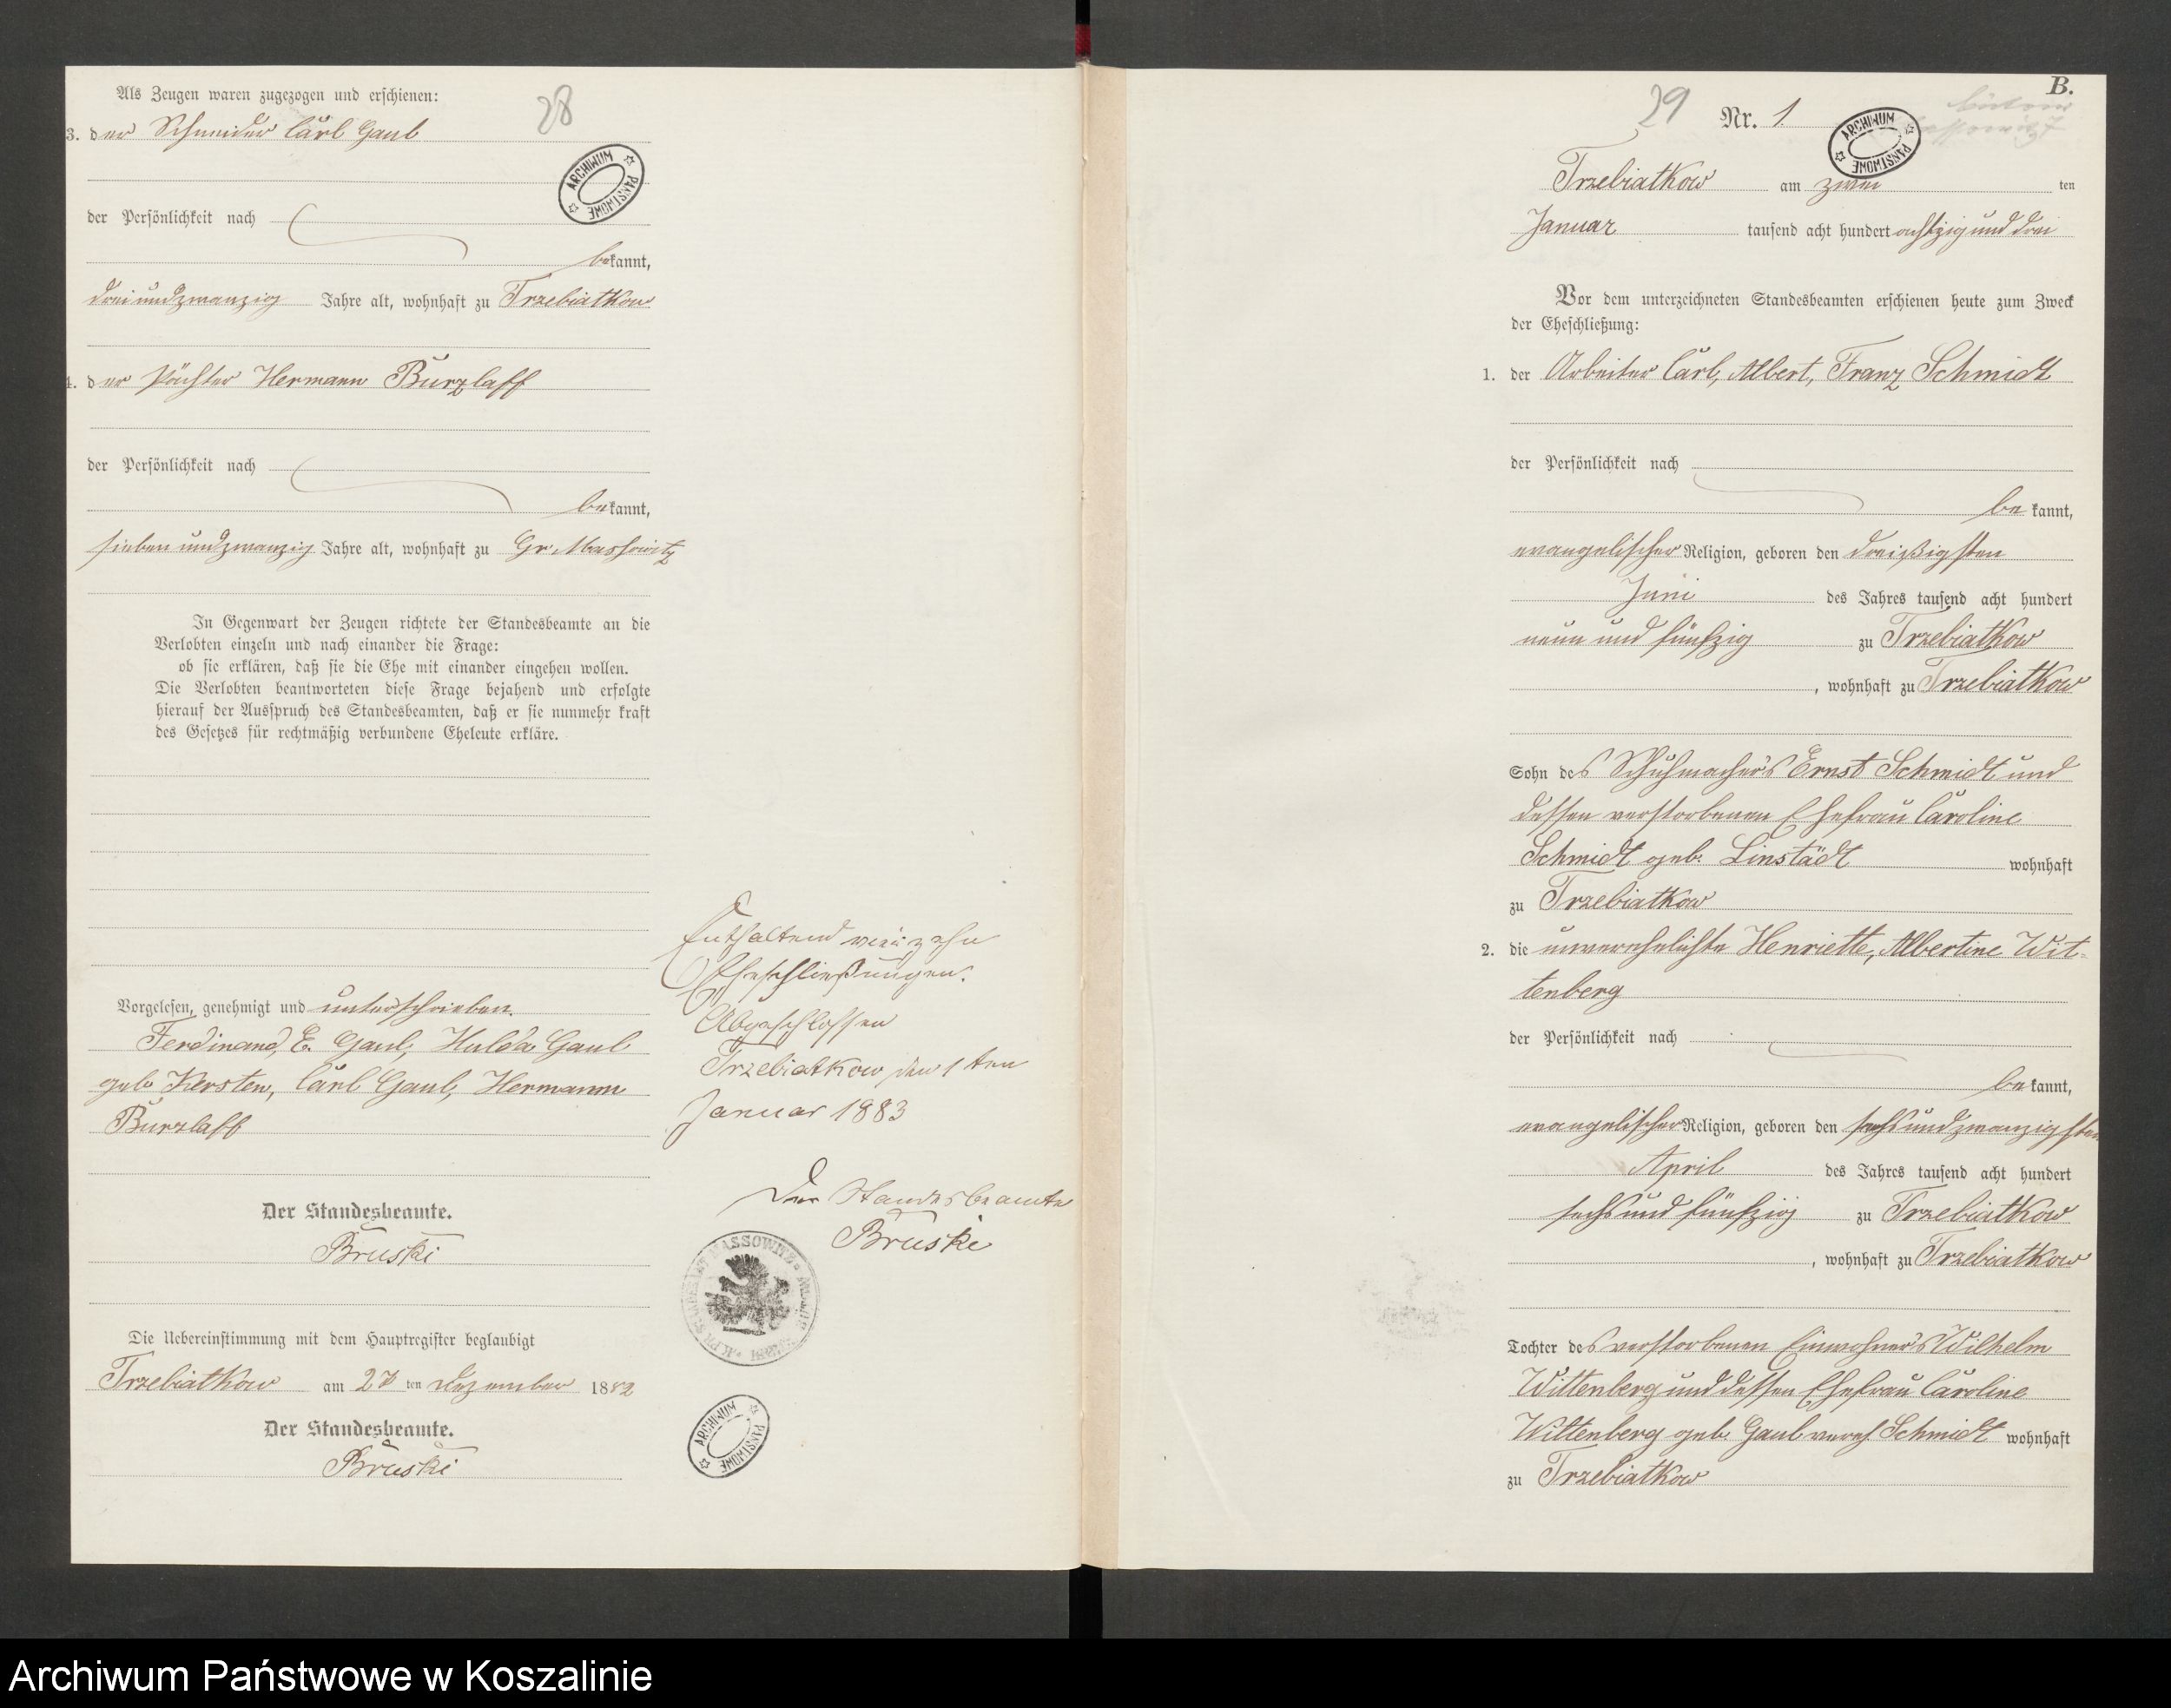 Als Zeugen waren zugezogen und erschienen:
28
3. der Schneider Carl Gaul
ARCHIWUM PAŃSTWOWE
der Persönlichkeit nach
bekannt,
dreiundzwanzig Jahre alt, wohnhaft zu Trzebiatkow
4. der Pächter Hermann Burzlaff
der Persönlichkeit nach
bekannt,
sieben undzwanzig Jahre alt, wohnhaft zu Gr. Massowitz
In Gegenwart der Zeugen richtete der Standesbeamte an die
Verlobten einzeln und nach einander die Frage:
ob sie erklären, daß sie die Ehe mit einander eingehen wollen.
Die Verlobten beantworteten diese Frage bejahend und erfolgte
hierauf der Ausspruch des Standesbeamten, daß er sie nunmehr kraft
des Gesetzes für rechtmäßig verbundene Eheleute erkläre.
Vorgelesen, genehmigt und unterschrieben.
Ferdinand, E. Gaul, Hulda Gaul
geb. Kersten, Carl Gaul, Hermann
Burzlaff
Der Standesbeamte.
Bruski
Die Uebereinstimmung mit dem Hauptregister beglaubigt
Trzebiatkow am ten Dezember 1882
Der Standesbeamte.
Bruski
Enthaltend vierzehn
Eheschließungen.
Abgeschlossen
Trzebiatkow den 1ten
Januar 1883
Der Standesbeamte
Bruski
MASSOWITZ
ARCHIWUM PAŃSTWOWE
B.
29 Nr. 1
ARCHIWUM PAŃSTWOWE
Trzebiatkow am zwei ten
Januar tausend acht hundert achtzig und drei
Vor dem unterzeichneten Standesbeamten erschienen heute zum Zweck
der Eheschließung:
1. der Arbeiter Carl, Albert, Franz Schmidt
der Persönlichkeit nach
be kannt,
evangelischer Religion, geboren den dreißigsten
Juni des Jahres tausend acht hundert
neun und fünfzig zu Trzebiatkow
, wohnhaft zu Trzebiatkow
Sohn des Schuhmachers Ernst Schmidt und
dessen verstorbenen Ehefrau Caroline
Schmidt geb. Linstädt wohnhaft
zu Trzebiatkow
2. die unverehelichte Henriette, Albertine Wit-
tenberg
der Persönlichkeit nach
be kannt,
evangelischer Religion, geboren den sechsundzwanzigsten
April des Jahres tausend acht hundert
sechs und fünfzig zu Trzebiatkow
, wohnhaft zu Trzebiatkow
Tochter des verstorbenen Einwohners Wilhelm
Wittenberg und dessen Ehefrau Caroline
Wittenberg geb. Gaul vereh. Schmidt wohnhaft
zu Trzebiatkow
Archiwum Państwowe w Koszalinie